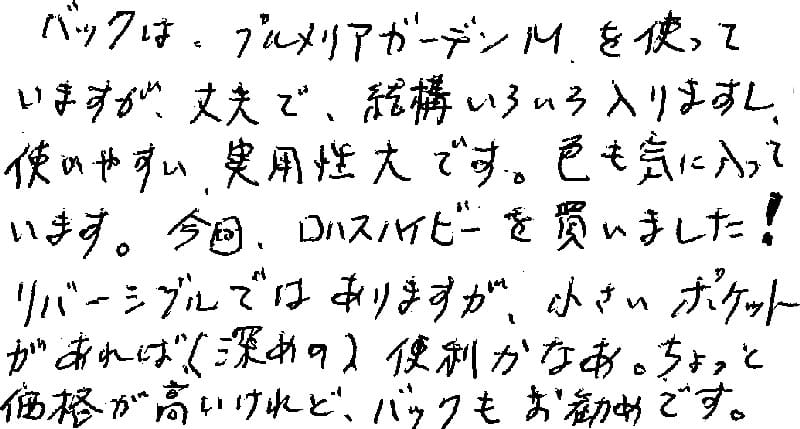 バックは、プルメリアガーデンMを使って
いますが、丈夫で、結構いろいろ入りますし、
使いやすい、実用性大です。色も気に入って
います。今回、ロハスハイビーを買いました!
リバーシブルではありますが、小さいポケット
があれば(深めの)便利かなあ。ちょっと
価格が高いけれど、バックもお勧めです。